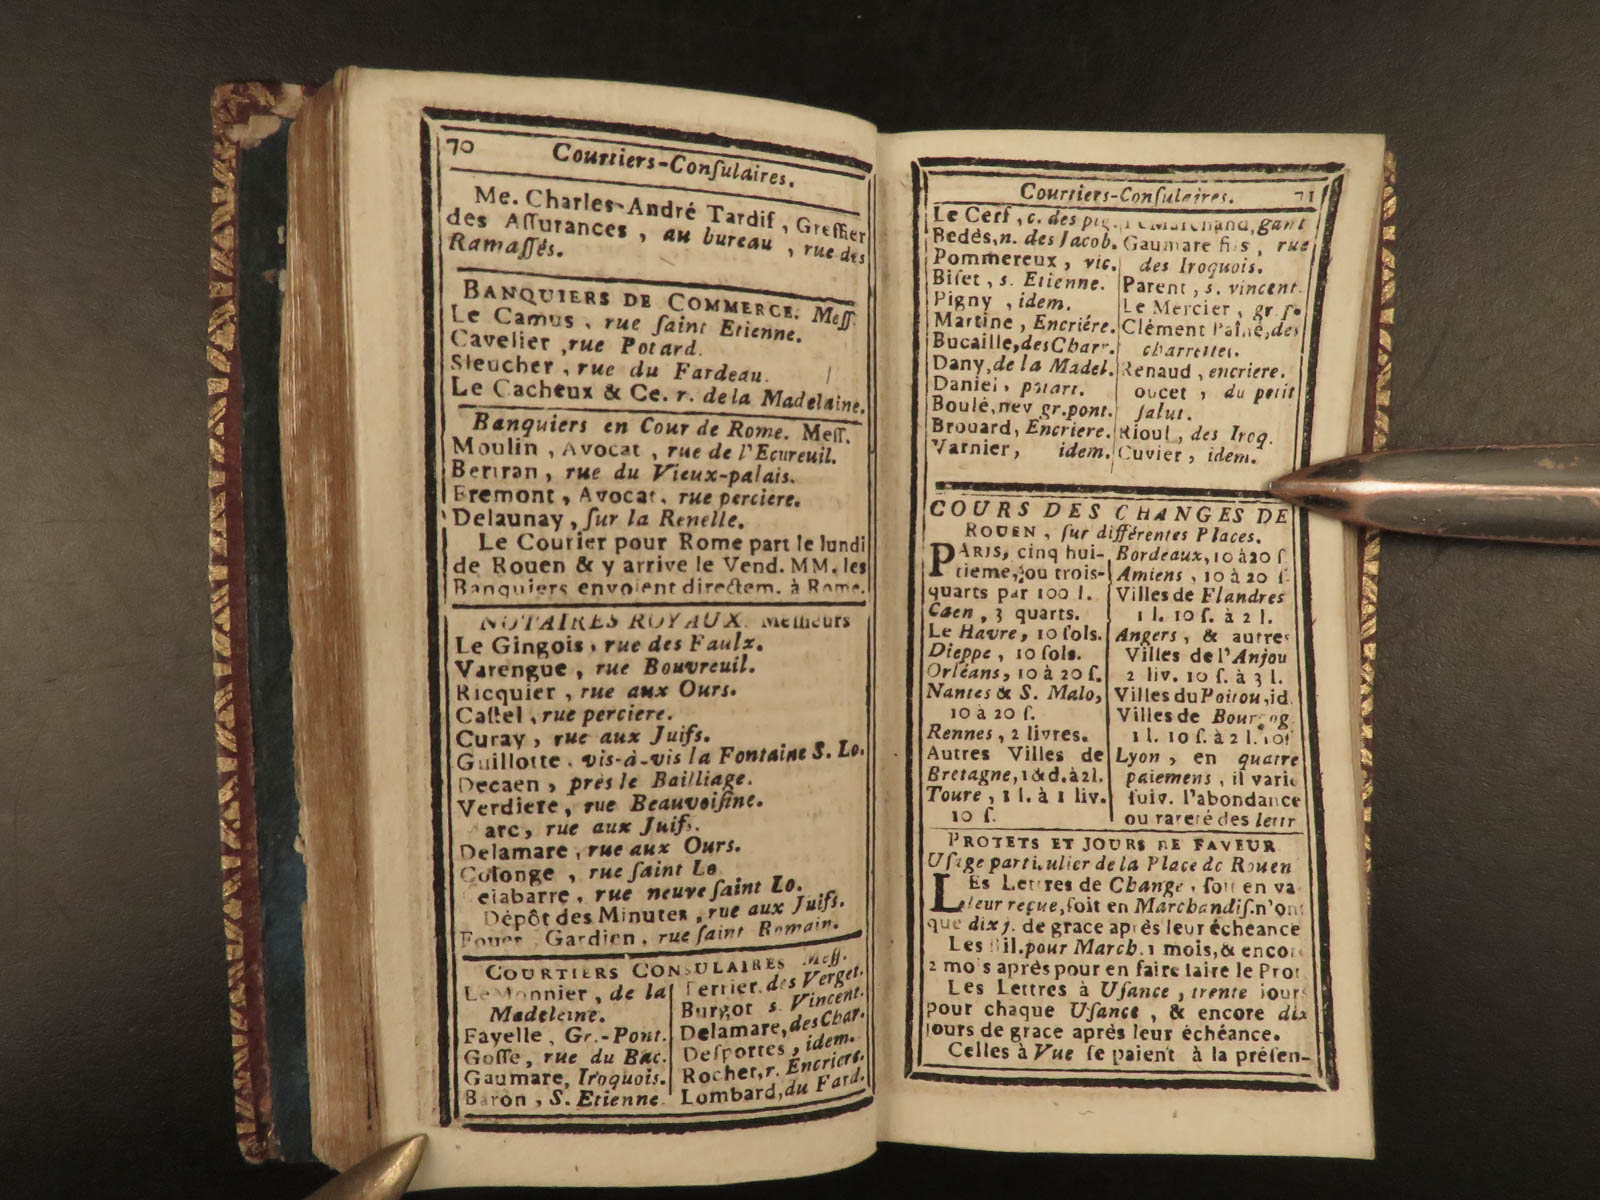 70 Courtiers-Conſulaires.
Me. Charles-André Tardif, Greffier
des Aſſurances, au bureau, rue des
Ramaſſés.
BANQUIERS DE COMMERCE. Meſſ.
Le Camus, rue ſaint Etienne.
Cavelier, rue Potard.
Sleucher, rue du Fardeau.
Le Cacheux & Ce. r. de la Madelaine.
Banquiers en Cour de Rome. Meſſ.
Moulin, Avocat, rue de l'Ecureuil.
Bertran, rue du Vieux-palais.
Fremont, Avocat, rue perciere.
Delaunay, ſur la Renelle.
Le Courier pour Rome part le lundi
de Rouen & y arrive le Vend. MM. les
Banquiers envoient directem. à Rome.
NOTAIRES ROYAUX. Meſſieurs
Le Gingois, rue des Faulx.
Varengue, rue Bouvreuil.
Ricquier, rue aux Ours.
Caſtel, rue perciere.
Curay, rue aux Juifs.
Guillotte, vis-à-vis la Fontaine S. Lo.
Decaen, près le Bailliage.
Verdiere, rue Beauvoiſine.
arc, rue aux Juifs.
Delamare, rue aux Ours.
Colonge, rue ſaint Lo
elabarre, rue neuve ſaint Lo.
Dépôt des Minutes, rue aux Juifs.
Gardien, rue ſaint Romain.
COURTIERS CONSULAIRES Meſſ.
Le Monnier, de la
Madeleine.
Fayelle, Gr.-Pont.
Goſſe, rue du Bac.
Gaumare, Iroquois.
Baron, S. Etienne.
Terrier, des Verget.
Burgot s. Vincent.
Delamare, des Char.
Deſportes, idem.
Rocher, r. Encriere.
Lombard, du Fard.
Courtiers-Conſulaires. 71
Le Cerf, c. des pig.
Bedès, n. des Jacob.
Pommereux, vic.
Biſet, s. Etienne.
Pigny, idem.
Martine, Encriére.
Bucaille, des Charr.
Dany, de la Madel.
Daniel, potart.
Boulé, nev gr. pont.
Brouard, Encriere.
Varnier, idem.
Le Marchand, gant
Gaumare fils, rue
des Iroquois.
Parent, s. vincent.
Le Mercier, gr. ſo
Clément l'aîné, des
charrettes.
Renaud, encriere.
oucet, du petit
ſalut.
Rioul, des Iroq.
Cuvier, idem.
COURS DES CHANGES DE
ROUEN, ſur différentes Places.
PARIS, cinq hui-
tieme, ou trois-
quarts par 100 l.
Caen, 3 quarts.
Le Havre, 10 ſols.
Dieppe, 10 ſols.
Orléans, 10 à 20 ſ.
Nantes & S. Malo,
10 à 20 ſ.
Rennes, 2 livres.
Autres Villes de
Bretagne, 1 & d. à 2 l.
Toure, 1 l. à 1 liv.
10 ſ.
Bordeaux, 10 à 20 ſ
Amiens, 10 à 20 ſ.
Villes de Flandres
1 l. 10 ſ. à 2 l.
Angers, & autres
Villes de l'Anjou
2 liv. 10 ſ. à 3 l.
Villes du Poitou, id
Villes de Bourgog
1 l. 10 ſ. à 2 l. 10 ſ
Lyon, en quatre
paiemens, il varie
ſuiv. l'abondance
ou rareté des lettr
PROTETS ET JOURS DE FAVEUR
Uſage particulier de la Place de Rouen
LEs Lettres de Change, ſoit en va
leur reçue, ſoit en Marchandiſ. n'ont
que dix j. de grace après leur écheance
Les Bil. pour March. 1 mois, & encore
2 mois après pour en faire faire le Prot
Les Lettres à Uſance, trente jours
pour chaque Uſance, & encore dix
jours de grace après leur échéance.
Celles à Vue ſe paient à la préſen-